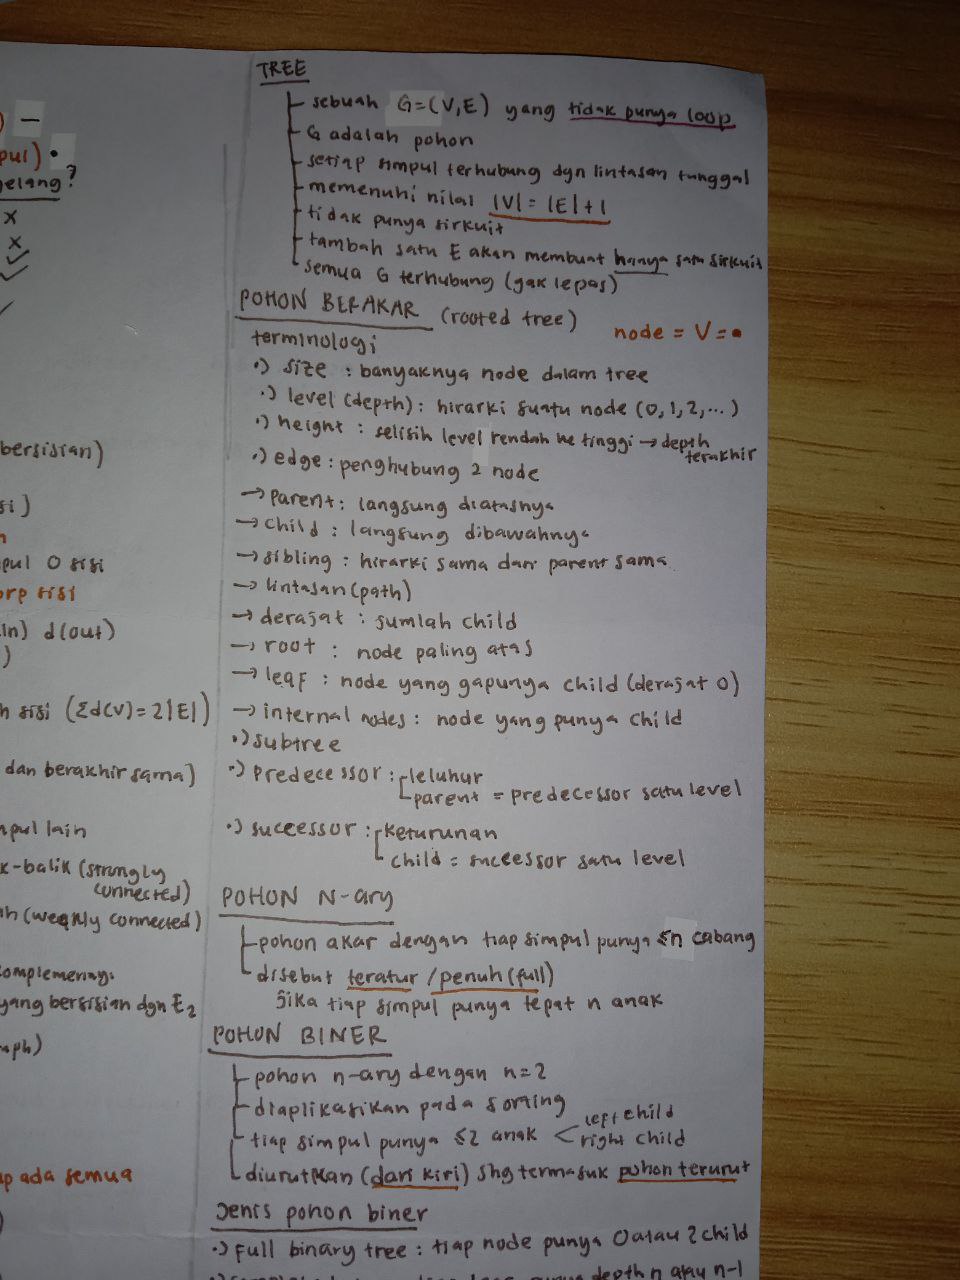 ) —
pul) •
gelang?
x
x
✓
✓
bersisian)
si)
n
pul 0 sisi
brp sisi
in) d(out)
)
h sisi (Σd(v)=2|E|)
dan berakhir sama)
mpul lain
k-balik (strongly
connected)
ah (weakly connected)
omplemennya
yang bersisian dgn E2
aph)
ap ada semua
TREE
sebuah G=(V,E) yang tidak punya loop
G adalah pohon
setiap simpul terhubung dgn lintasan tunggal
memenuhi nilai |V| = |E|+1
tidak punya sirkuit
tambah satu E akan membuat hanya satu sirkuit
semua G terhubung (gak lepas)
POHON BERAKAR (rooted tree)
node = V = •
terminologi
•) size : banyaknya node dalam tree
•) level (depth) : hirarki suatu node (0,1,2,...)
•) height : selisih level rendah ke tinggi → depth
terakhir
•) edge : penghubung 2 node
→ parent : langsung diatasnya
→ child : langsung dibawahnya
→ sibling : hirarki sama dan parent sama
→ lintasan (path)
→ derajat : jumlah child
→ root : node paling atas
→ leaf : node yang gapunya child (derajat 0)
→ internal nodes : node yang punya child
•) subtree
•) predecessor : leluhur
parent = predecessor satu level
•) successor : keturunan
child = successor satu level
POHON N-ary
pohon akar dengan tiap simpul punya ≤n cabang
disebut teratur / penuh (full)
jika tiap simpul punya tepat n anak
POHON BINER
pohon n-ary dengan n=2
diaplikasikan pada sorting
tiap simpul punya ≤2 anak < left child
right child
diurutkan (dari kiri) shg termasuk pohon terurut
Jenis pohon biner
•) Full binary tree : tiap node punya 0 atau 2 child
depth n atau n-1